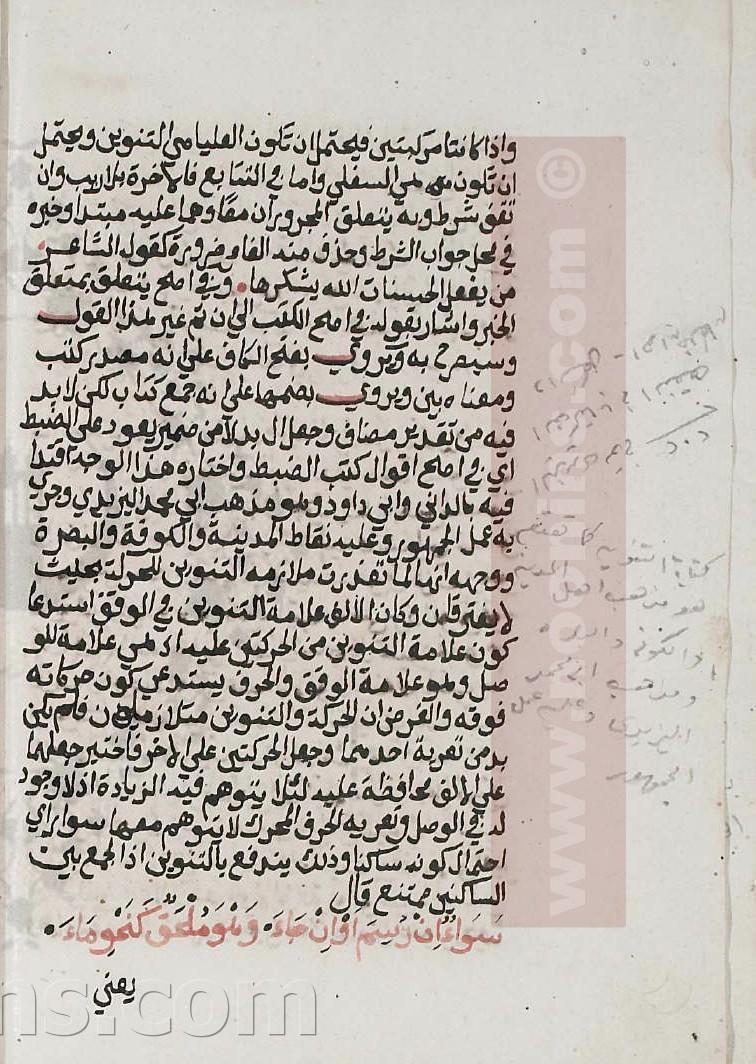 واذا كانتا مركبتين فيحتمل ان تكون العليا هي التنوين ويحتمل
ان تكون هي السفلي واما في التتابع فالاخرة بلا ريب وان
تقف شرط وبه يتعلق المجروران معا وهما عليه مبتدا وخبره
في محل جواب الشرط وحذف منه الفاء ضرورة كقول الشاعر
من يفعل الحسنات الله يشكرها وفي اصح يتعلق بمتعلق
الخبر واشار بقوله في اصح الكتب الي ان تم غير هذا القول
وسيصرح به ويروي بفتح الكاف علي انه مصدر كتب
ومعناه بين ويروي بضمها علي انه جمع كتاب لكن لا بد
فيه من تقدير مضاف وجعل ال بدلا من ضمير يعود علي الضبط
اي في اصح اقوال كتب الضبط واختاره هذا الوجه اقتدا
فيه بالداني وابي داود وهو مذهب ابي محمد اليزيدي وجري
به عمل الجمهور وعليه نقاط المدينة والكوفة والبصرة
ووجهه انها لما تقدرت ملازمه التنوين للحركة بحيث
لا يفترقان وكان الالف علامة التنوين في الوقف استدعا
كون علامة التنوين من الحركتين عليه اذ هي علامة للو
صل وهو علامة الوقف والحرف يستدعي كون حركاته
فوقه والفرض ان الحركة والتنوين متلازمان فلم يكن
بد من تعرية احدهما وجعل الحركتين علي الاخر فاختير جعلهما
علي الالف محافظة عليه لئلا يتوهم فيه الزيادة اذ لا وجود
له في الوصل وتعريه الحرف المحرك لا يتوهم معها سوا راي
احتمال كونه ساكنا وذلك يندفع بالتنوين اذ الجمع بين
الساكنين ممتنع قال
سَوَاءٌ اِنْ رُسِمَ اَوْ اِنْ جَاءَ وَهْوَ مُلْحَقٌ كَنَحْوِ مَاءَ
يعني
كتابة التنوين
هو مذهب اهل المدينة
والكوفة والبصرة
ومذهب ابي محمد
اليزيدي وعليه عمل
الجمهور
© www.noorlins.com
ns.com